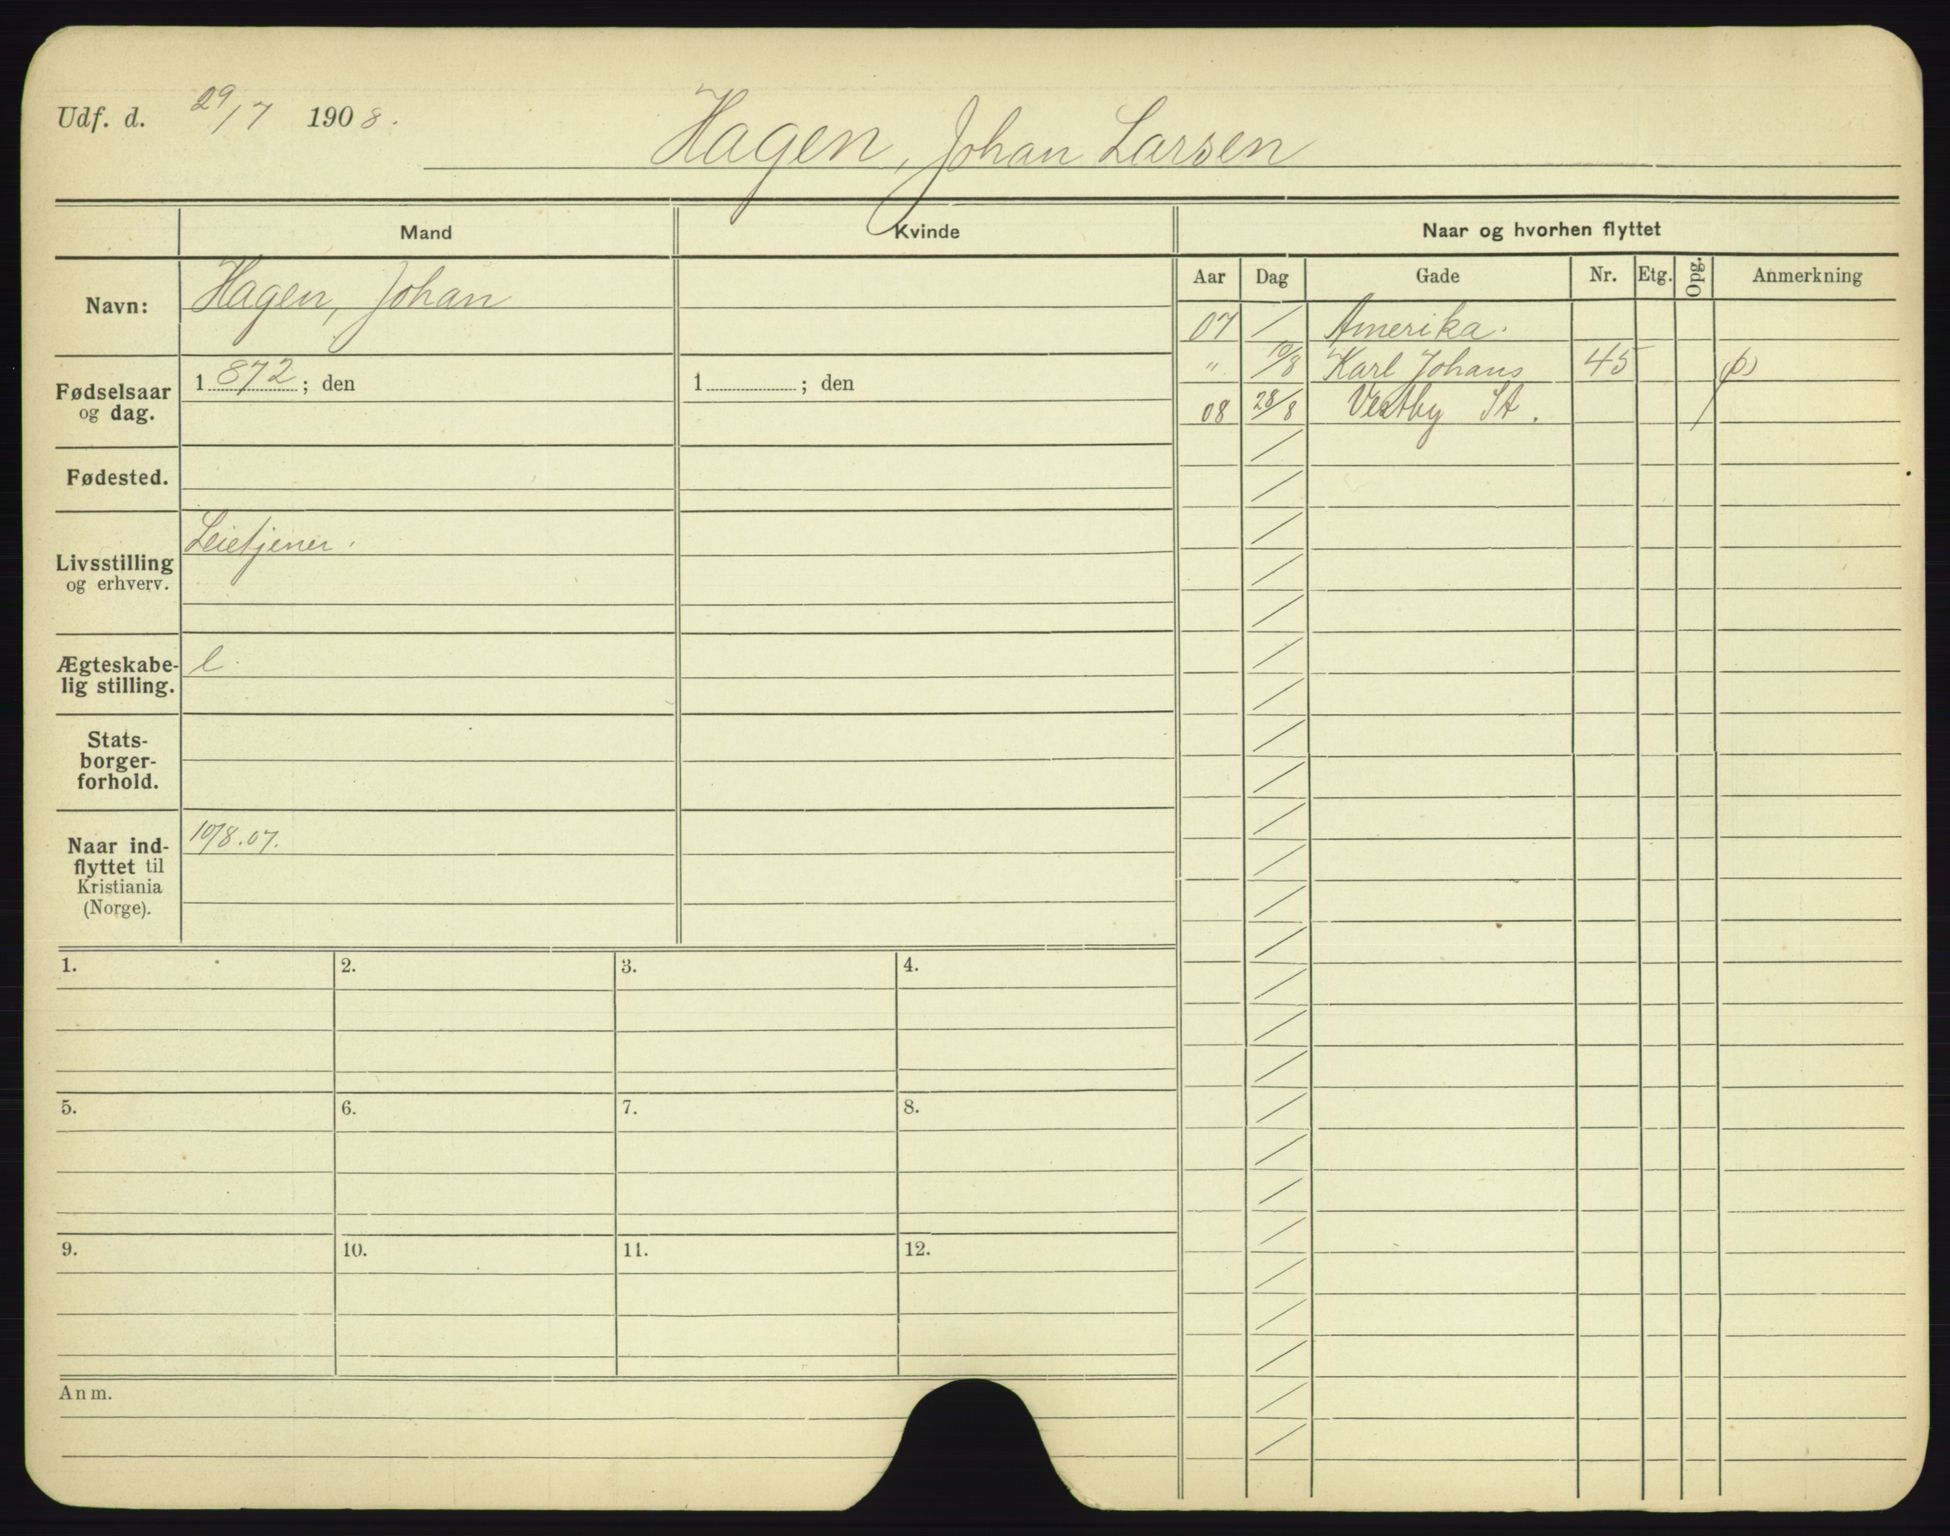 Udf. d. 29/7 1908.
Hagen, Johan Larsen
Mand Kvinde Naar og hvorhen flyttet
Aar Dag Gade Nr. Etg. Opg. Anmerkning
Navn: Hagen, Johan
07 / Amerika.
" 10/8 Karl Johans 45 (p)
08 28/8 Vestby St.
Fødselsaar
og dag.
1872; den 1 ; den
Fødested.
Livsstilling
og erhverv.
Leietjener.
Ægteskabe-
lig stilling.
e.
Stats-
borger-
forhold.
Naar ind-
flyttet til
Kristiania
(Norge).
10/8.07.
1. 2. 3. 4.
5. 6. 7. 8.
9. 10. 11. 12.
Anm.